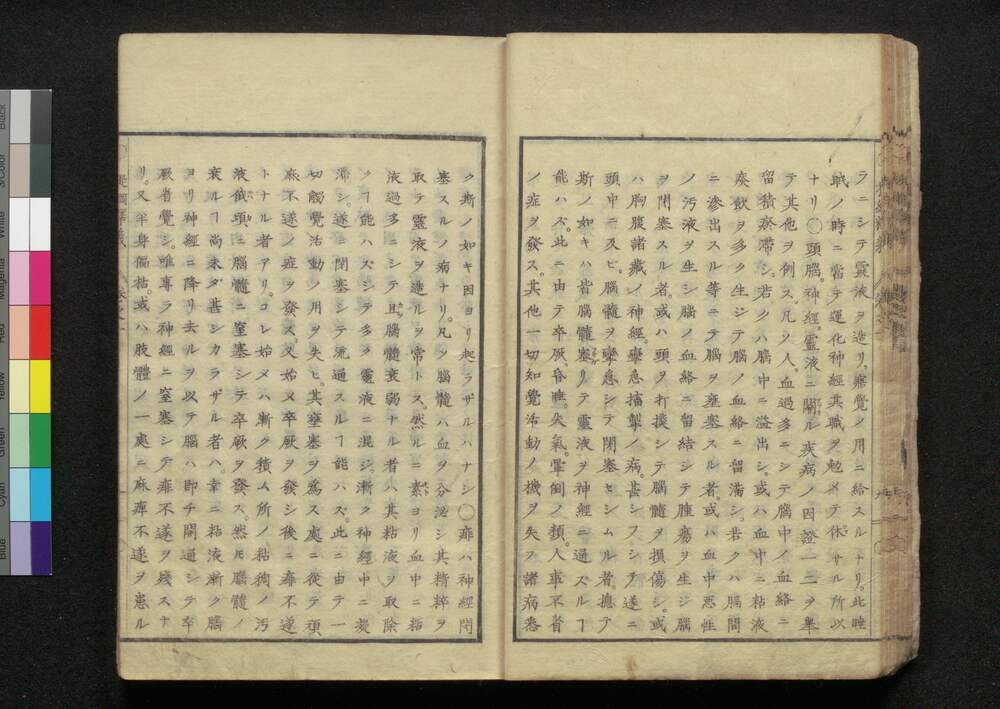 ラニシテ靈液ヲ造リ。寤覺ノ用ニ給スルナリ。此睡
眠ノ時ニ當テ運化神經其職ヲ勉メテ休サル所以
ナリ〇頭腦。神經。靈液ニ關ル疾病ノ因證一二ヲ擧
テ其他ヲ例ス。凡ソ人。血過多ニシテ腦中ノ血絡ニ
留積瘀滯シ。若クハ腦中ニ溢出シ。或ハ血中ニ粘液
痰飮ヲ多ク生シテ腦ノ血絡ニ留滿シ。若クハ腦間
ニ滲出スル等ニテ腦ヲ壅塞スル者。或ハ血中惡性
ノ汚液ヲ生シ腦ノ血絡ニ留結シテ腫瘍ヲ生シ腦
ヲ閉塞スル者。或ハ頭ヲ打撲シテ腦髓ヲ損傷シ。或
ハ胸腹諸藏ノ神經。攣急搐掣ノ病甚シフシテ遂ニ
頭中ニ及ヒ。腦髓ヲ攣急シテ閉塞セシムル者。摠テ
斯ノ如キハ皆腦髓塞リテ靈液ヲ神經ニ通ズル
能ハズ。此ニ由テ卒厥。昏睡。失氣。暈倒ノ類。人事不省
ノ症ヲ發ス。其他一切知覺活動ノ機ヲ失フ諸病悉
ク斯ノ如キ因ヨリ起ラザルハナシ〇痱ハ神經閉
塞スルノ病ナリ。凡ソ腦髓ハ血ヲ分泌シ其精粹ヲ
取テ靈液ヲ造ルヲ常トス。然ルニ素ヨリ血中ニ粘
液過多ニシテ且腦髓衰弱ナル者ハ其粘液ヲ取除
クフ能ハズシテ多ク靈液ニ混シ。漸ク神經中ニ凝
滯シ。遂ニ閉塞シテ流通スルヿ能ハズ。此ニ由テ一
切觸覺活動ノ用ヲ失ヒ。其壅塞ヲ爲ス處ニ從テ頑
麻不遂ノ症ヲ發ス。又始メ卒厥ヲ發シ後ニ痱不遂
トナル者アリ。コレ始メハ漸ク積ム所ノ粘稠ノ汚
液俄頃ニ腦髓ニ窒塞シテ卒厥ヲ發ス。然𪜈腦髓ノ
衰ルヿ尚未ダ甚シカラザル者ハ。幸ニ粘液漸ク腦
ヨリ神經ニ降リ去ルヲ以テ腦ハ即チ開通シテ卒
厥省覺シ。唯專ラ神經ニ窒塞シテ痱不遂ヲ殘スナ
リ。又半身偏枯。或ハ肢體ノ一處ニ麻痺不遂ヲ患ル